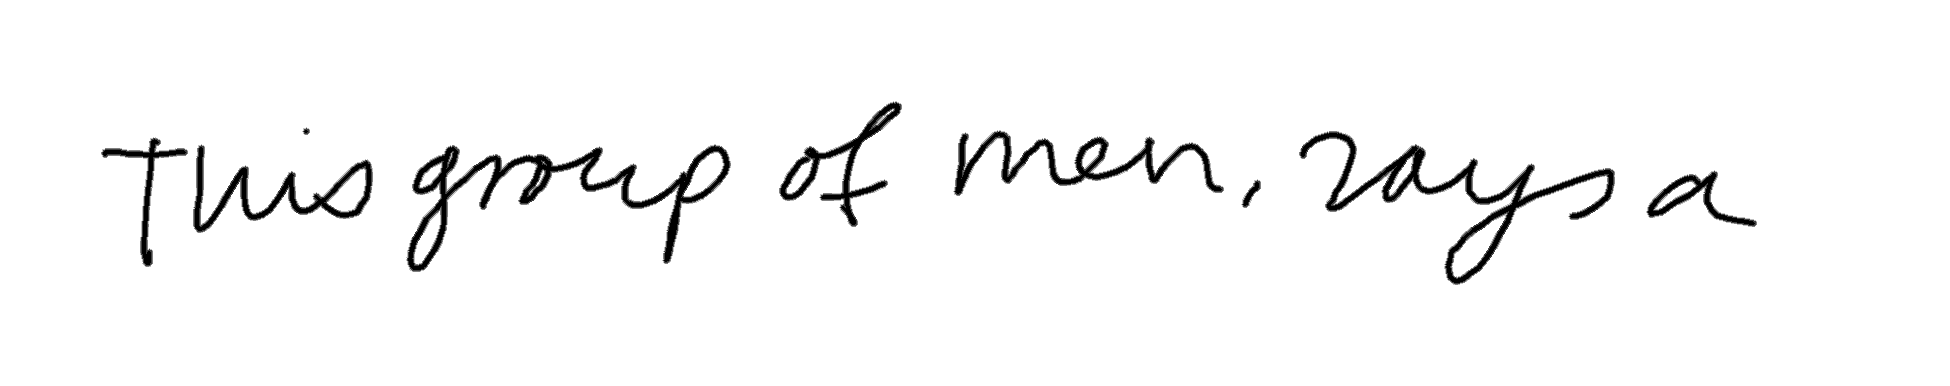 This group of men, says a